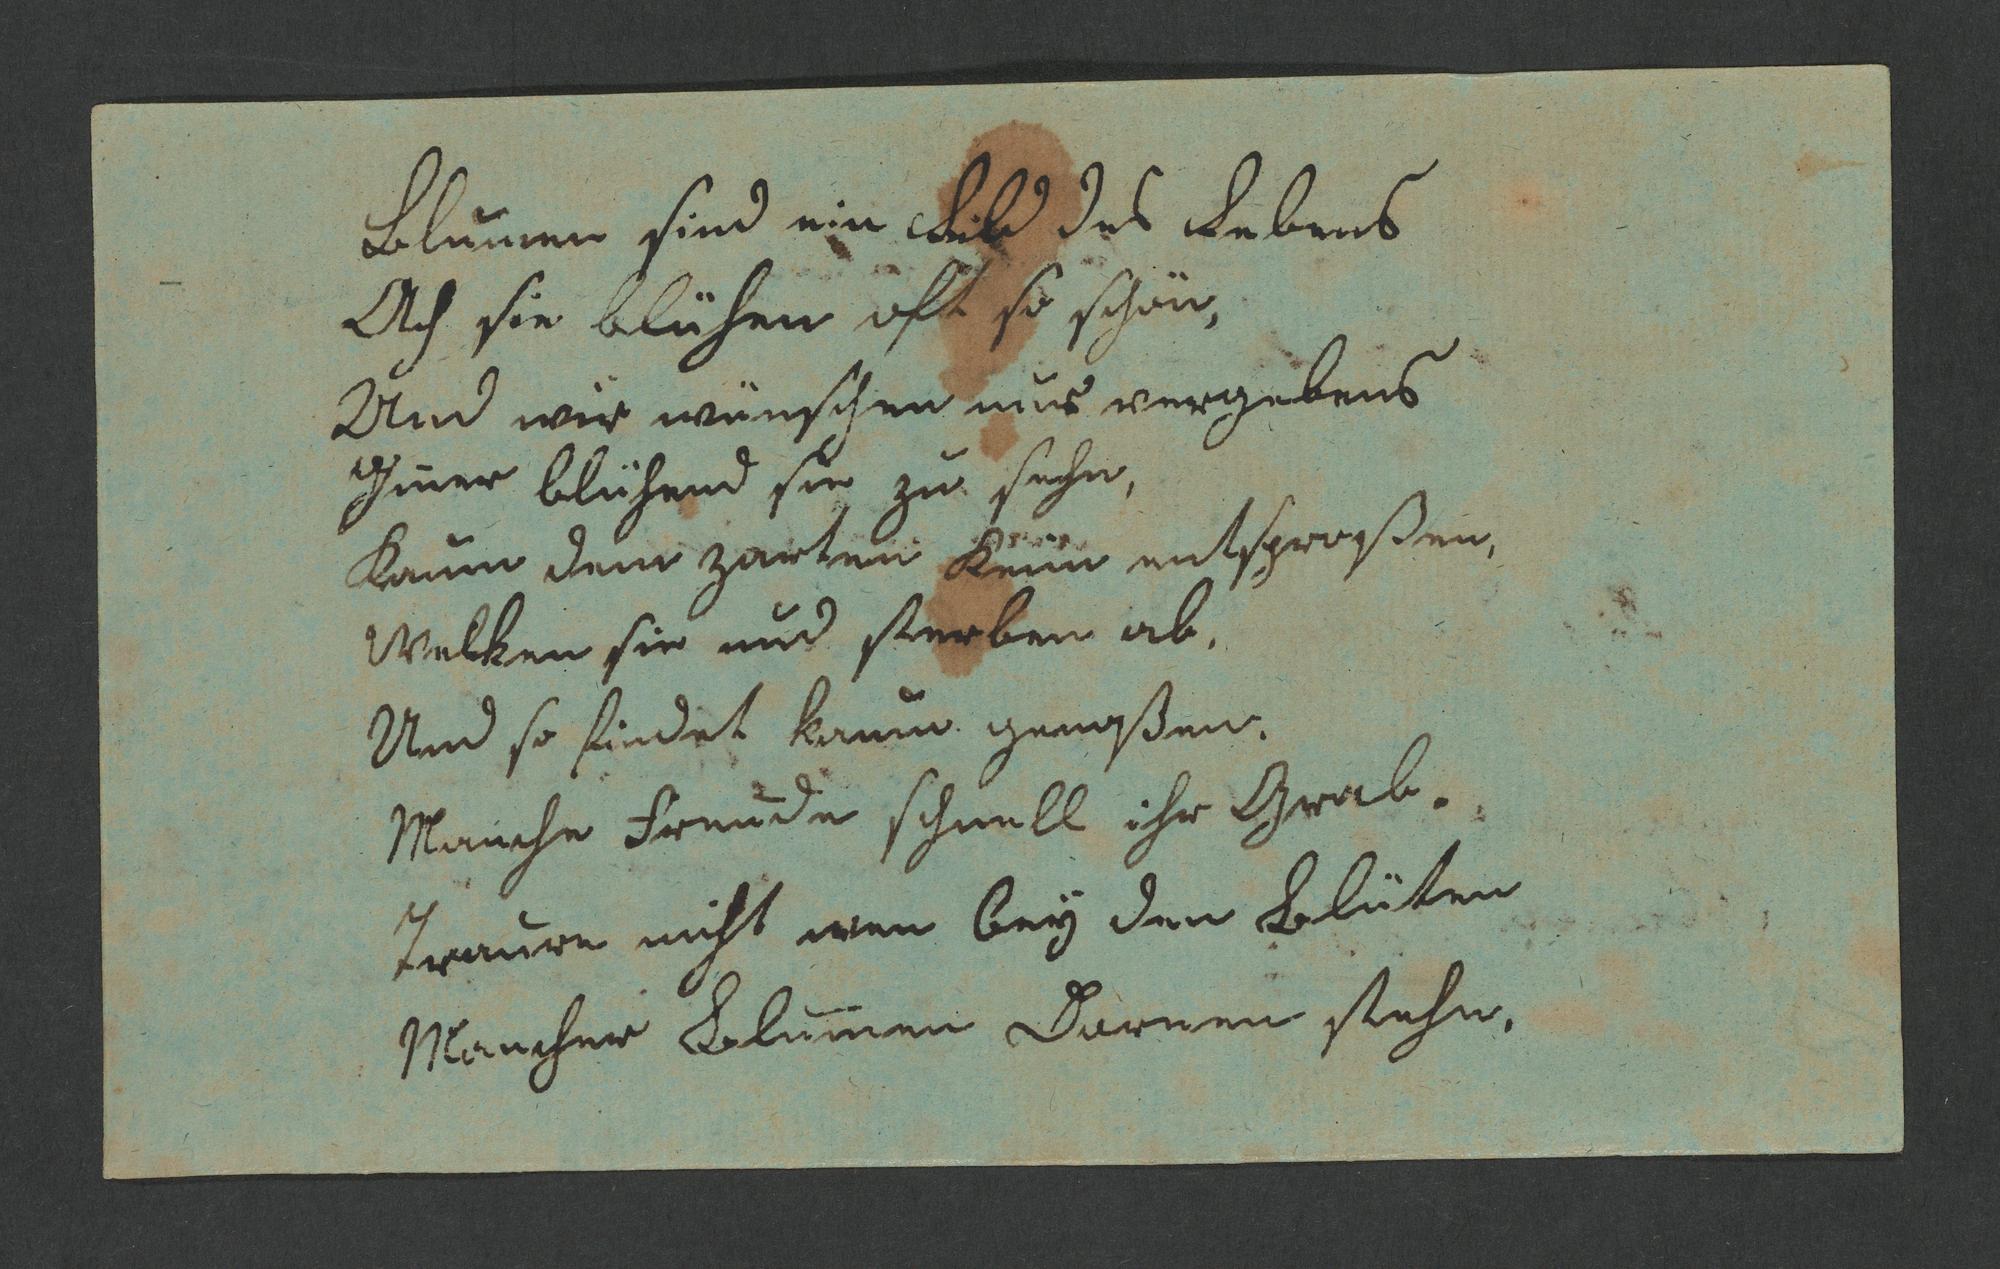 Blumen sind ein Bild des Lebens
Ach sie blühen oft so schön,
Und wir wünschen uns vergebens
Im̄er blühend sie zu sehn,
Kaum dem zarten Keim entsproßen,
Welken sie und sterben ab,
Und so findet kaum genoßen,
Manche Freude schnell ihr Grab.
Traure nicht wen bey den Blüten
Mancher Blumen Dornen stehn,